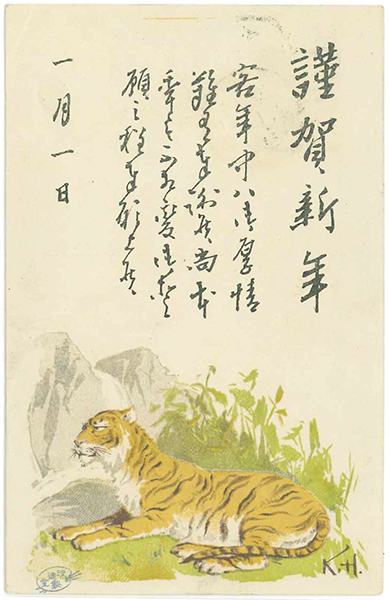 謹賀新年
客年中ハ御厚情
難有奉謝候尚本
年も不相変御愛
顧之程奉願上候
一月一日
K.H.